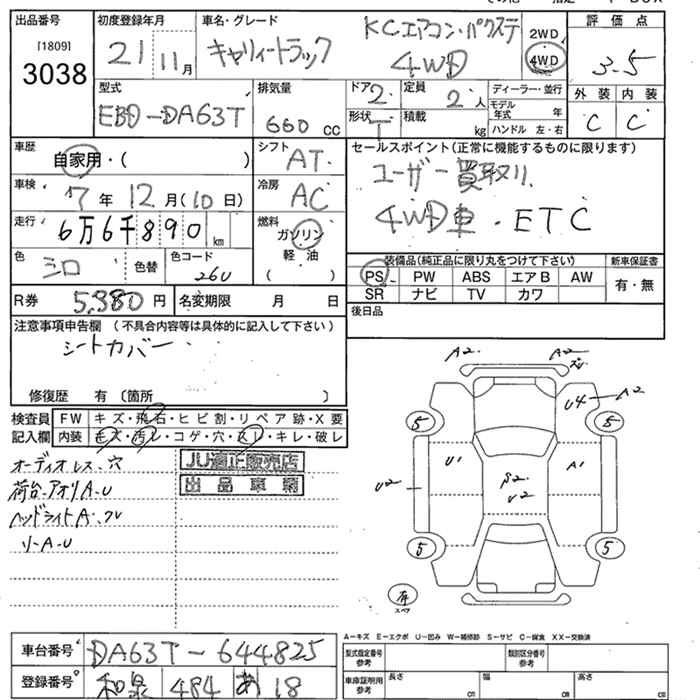 出品番号 初度登録年月 車名・グレード 評価点
[1809]
3038
21 11月 キャリィトラック KCエアコン・パワステ 4WD
2WD
4WD
3.5
型式 排気量 ドア 2 定員 2人 ディーラー・並行 外装 内装
EBD-DA63T 660 CC 形状 T 積載 kg モデル年式 年 C C
ハンドル 左・右
車歴 自家用・( ) シフト AT セールスポイント(正常に機能するものに限ります)
ユーザー買取り
車検 7年 12月(10日) 冷房 AC
4WD車・ETC
走行 6万6千890 km 燃料 ガソリン
軽油
( )
色 シロ 色替 色コード 26U
装備品(純正品に限り丸をつけて下さい) 新車保証書
PS PW ABS エアB AW 有・無
SR ナビ TV カワ
R券 5,380円 名変期限 月 日
後日品
注意事項申告欄 (不具合内容等は具体的に記入して下さい)
シートカバー
修復歴 有(箇所 )
検査員 FW キズ・飛石・ヒビ割・リペア跡・X要
記入欄 内装 キズ・汚レ・コゲ・穴・スレ・キレ・破レ
オーディオレス、穴
JU適正販売店
出品車輌
荷台、アオリA・U
ヘッドライトA・
リーA・U
A2 A2
U4 A2
5 5
U1 A1
U2 S2 U2
5 5
有
スペア
A-キズ E-エクボ U-凹み W-補修跡 S-サビ C-腐食 XX-交換済
車台番号 DA63T-644825
型式指定番号 参考 類別区分番号 参考
登録番号 和泉 484 あ 18
車庫証明用 参考 長さ cm 幅 cm 高さ cm